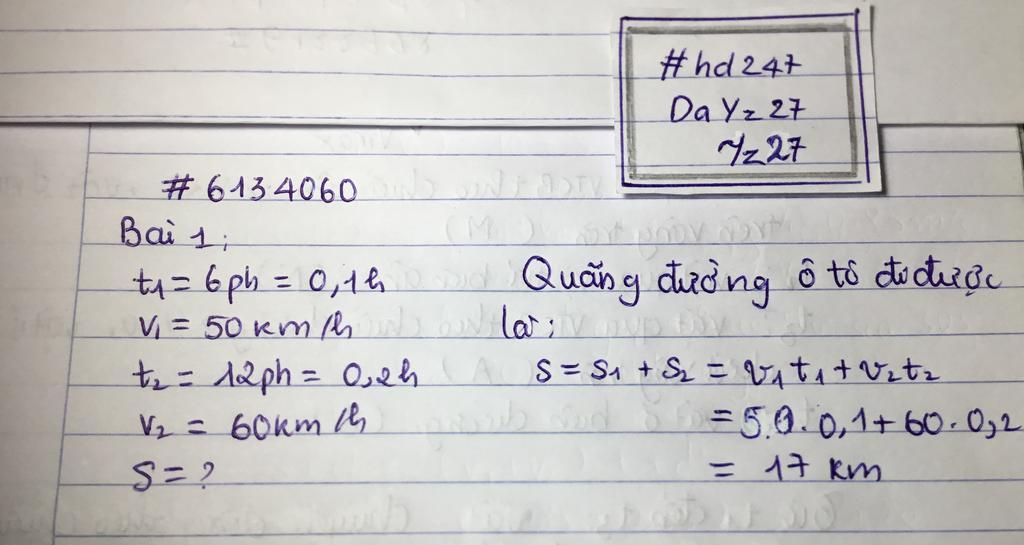 #hd247
Da Yz 27
Yz27
#6134060
Bài 1:
t1 = 6ph = 0,1h
v1 = 50 km/h
t2 = 12ph = 0,2h
v2 = 60km/h
S = ?
Quãng đường ô tô đi được
là:
S = S1 + S2 = v1t1 + v2t2
= 50.0,1+60.0,2
= 17 km